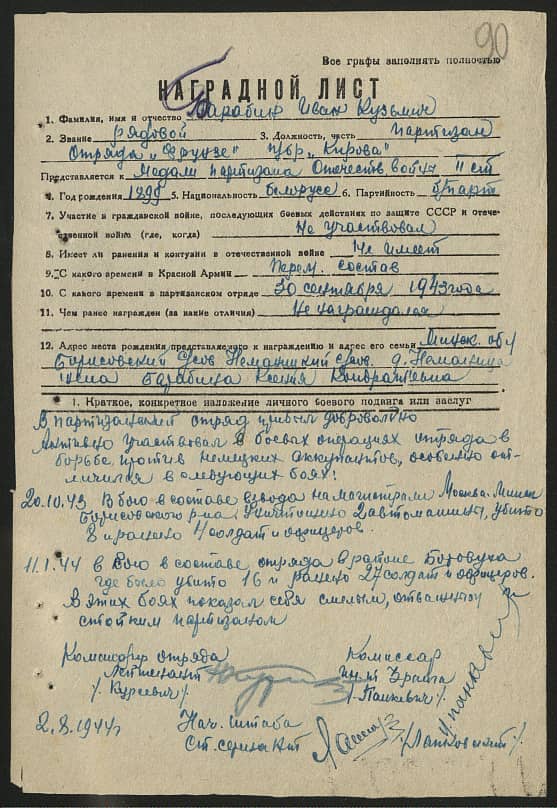 90
Все графы заполнять полностью
НАГРАДНОЙ ЛИСТ
1. Фамилия, имя и отчество Барабин Иван Кузьмич
2. Звание рядовой 3. Должность, часть партизан
Отряда „Фрунзе" п/бр „Кирова"
Представляется к Медали Партизана Отечеств войны II ст
4. Год рождения 1899 5. Национальность белорусс 6. Партийность б/парт
7. Участие в гражданской войне, последующих боевых действиях по защите СССР и отече-
ственной войне (где, когда) Не участвовал
8. Имеет ли ранения и контузии в отечественной войне Не имеет
9. С какого времени в Красной Армии Перем. состав
10. С какого времени в партизанском отряде 30 сентября 1943 года
11. Чем ранее награжден (за какие отличия) Не награждался
12. Адрес места рождения представляемого к награждению и адрес его семьи Минск. обл
Борисовский Неманицкий д. Неманица
жена Барабина Ксения Кондратьевна
1. Краткое, конкретное изложение личного боевого подвига или заслуг
В партизанский отряд прибыл добровольно
Активно участвовал в боевых операциях отряда в
борьбе против немецких аккупантов, особенно от-
личился в следующих боях:
20.10.43 В бою в составе взвода на магистрали Москва-Минск
Борисовского р-на уничтожено 2 автомашины, убито
8 и ранено 4 солдат и офицеров.
11.1.44 в бою в составе отряда в районе Боровуха
где было убито 16 и ранено 27 солдат и офицеров.
В этих боях показал себя смелым, отважным
стойким партизаном
Командир отряда Комиссар
Лейтенант
/Курсевич/ /Панкевич/
2.8.1944г Нач. штаба
Ст. сержант /Лапковский/